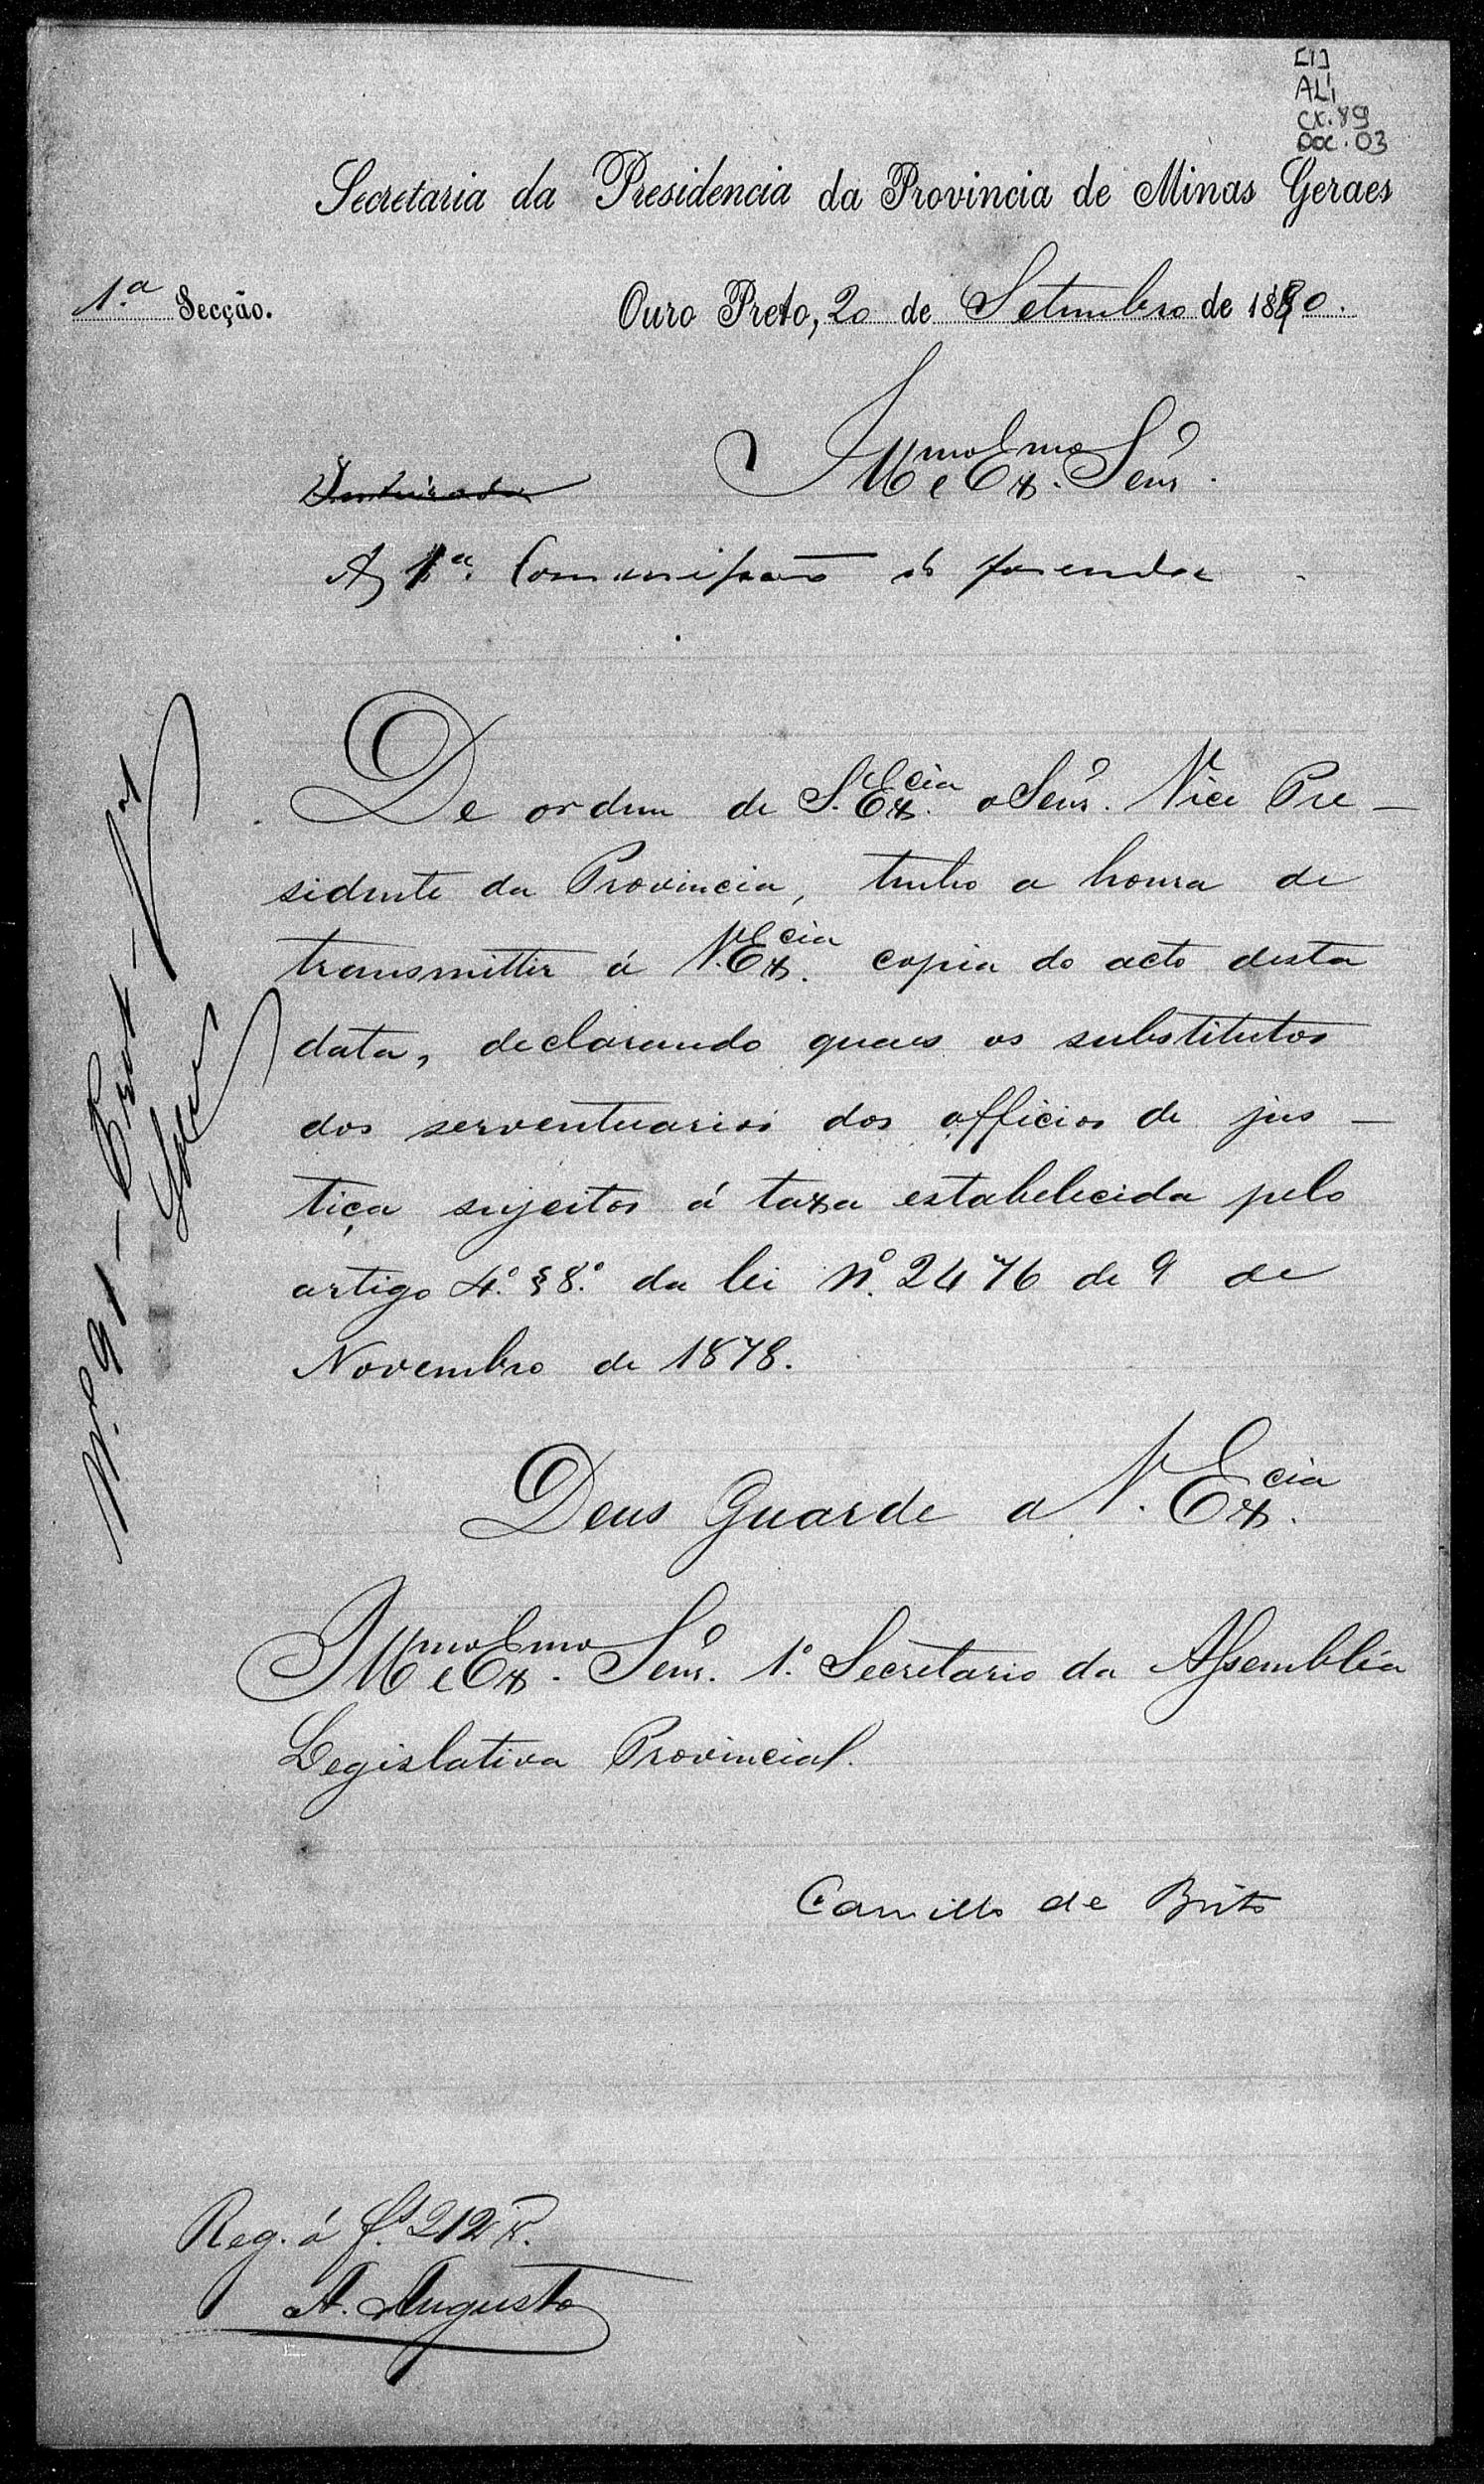 [1]
AL1
CX. 89
DOC. 03
Secretaria da Presidencia da Provincia de Minas Geraes
1.a Secção.
Ouro Preto, 20 de Setembro de 1880.
Illmo e Exmo. Senr.
Inteirada
A 1a. Commissão de fazenda
De ordem de S. Excia. o Senr. Vice Pre-
sidente da Provincia, tenho a honra de
transmittir á V. Excia. copia do acto desta
data, declarando quaes os substitutos
dos serventuarios dos officios de jus-
tiça sujeitos á taxa estabelecida pelo
artigo 4.º § 8.º da lei nº. 2476 de 9 de
Novembro de 1878.
Deus Guarde a V. Excia.
Illmo e Exmo. Senr. 1.º Secretario da Assembléa
Legislativa Provincial.
Camillo de Brito
N.º 91
Reg. á fs. 212 v.
A. Augusto